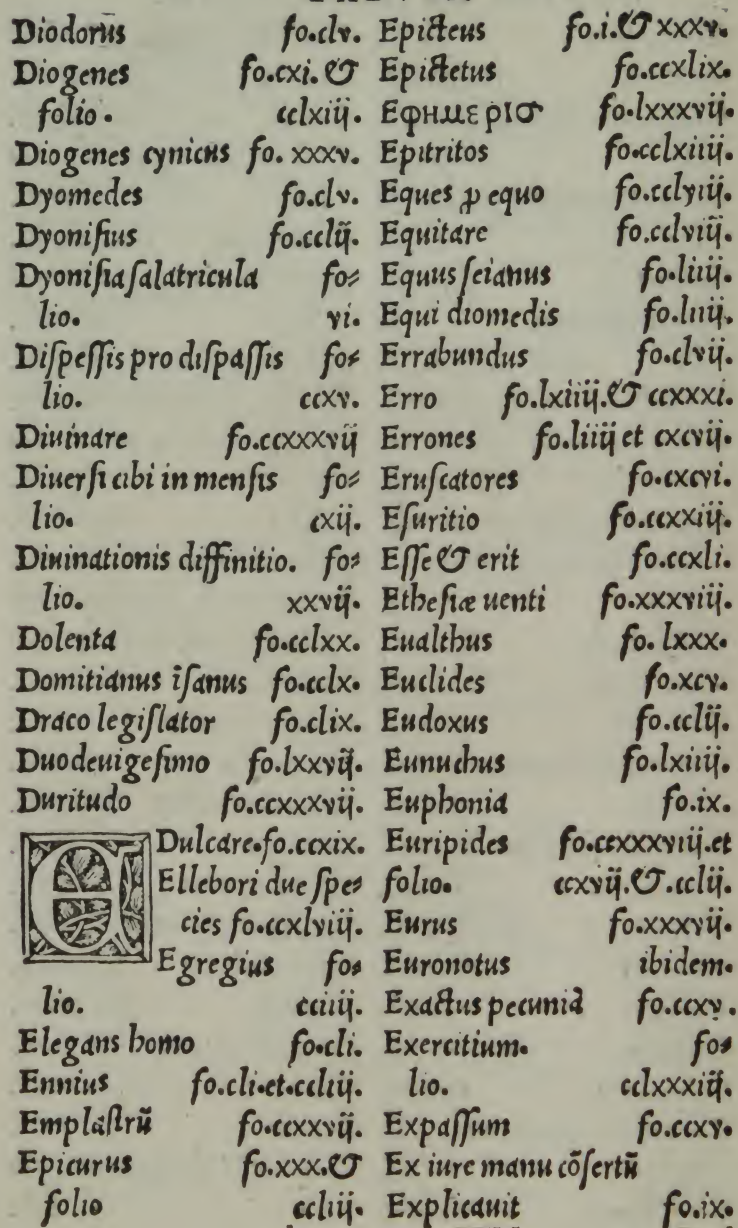 Diodorus fo.clv.
Diogenes fo.cxi. &
folio. cclxiij.
Diogenes cynicus fo. xxxv.
Dyomedes fo.clv.
Dyonisius fo.cclij.
Dyonisia salatricula fo⸗
lio. vi.
Dispessis pro dispassis fo⸗
lio. ccxv.
Diuinare fo.ccxxxvij
Diuersi cibi in mensis fo⸗
lio. cxij.
Diuinationis diffinitio. fo⸗
lio. xxvij.
Dolenta fo.cclxx.
Domitianus īsanus fo.cclx.
Draco legislator fo.clix.
Duodeuigesimo fo.lxxvij.
Duritudo fo.ccxxxvij.
EDulcare.fo.ccxix.
Ellebori due spe⸗
cies fo.ccxlviij.
Egregius fo⸗
lio. cciiij.
Elegans homo fo.cli.
Ennius fo.cli.et.ccliij.
Emplastrū fo.ccxxvij.
Epicurus fo.xxx.&
folio ccliij.
Epicteus fo.i.& xxxv.
Epictetus fo.ccxlix.
Εφημεριс fo.lxxxvij.
Epitritos fo.cclxiiij.
Eques ꝓ equo fo.cclviij.
Equitare fo.cclviij.
Equus seianus fo.liiij.
Equi diomedis fo.liiij.
Errabundus fo.clvij.
Erro fo.lxiiij.& ccxxxi.
Errones fo.liiij et cxcvij.
Eruscatores fo.cxcvi.
Esuritio fo.ccxxiij.
Esse & erit fo.ccxli.
Ethesiæ uenti fo.xxxviij.
Eualthus fo. lxxx.
Euclides fo.xcv.
Eudoxus fo.cclij.
Eunuchus fo.lxiiij.
Euphonia fo.ix.
Euripides fo.ccxxxviij.et
folio. ccxvij.&.cclij.
Eurus fo.xxxvij.
Euronotus ibidem.
Exactus pecuniā fo.ccxv.
Exercitium. fo⸗
lio. cclxxxiij.
Expassum fo.ccxv.
Ex iure manu cōsertū
Explicauit fo.ix.